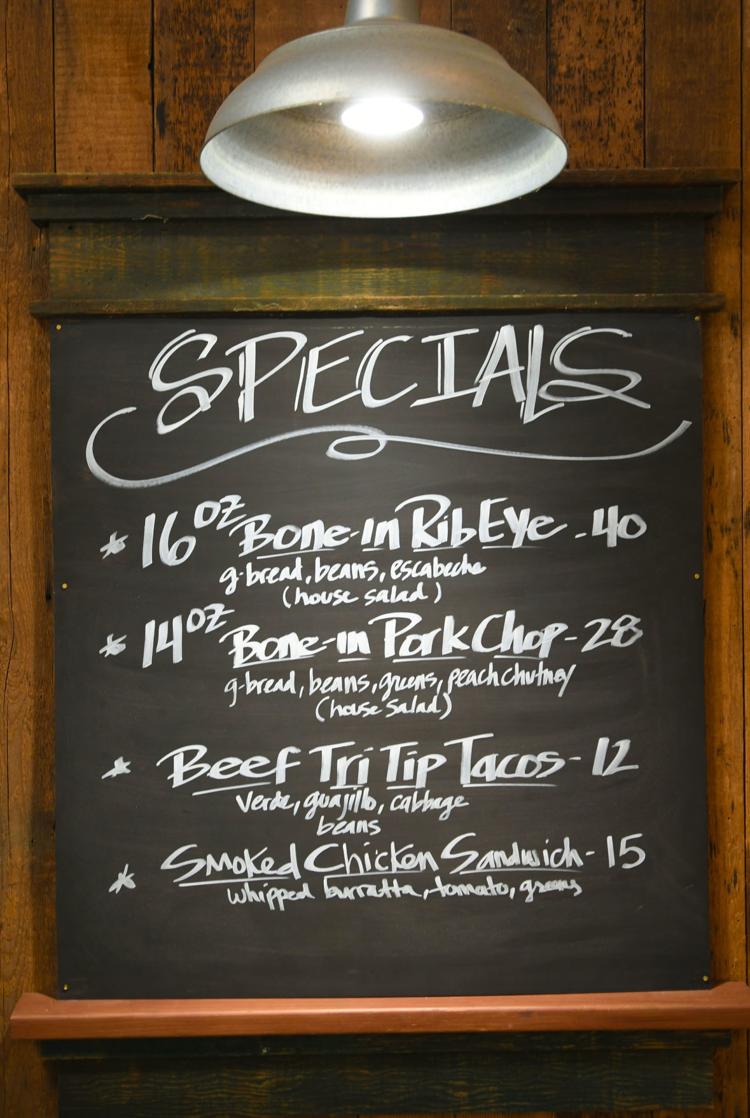 SPECIALS
* 16oz Bone-in Rib Eye - 40
g-bread, beans, escabeche
(house salad)
* 14oz Bone-in Pork Chop - 28
g-bread, beans, greens, peach chutney
(house salad)
* Beef Tri Tip Tacos - 12
verde, guajillo, cabbage
beans
* Smoked Chicken Sandwich - 15
whipped burratta, tomato, greens